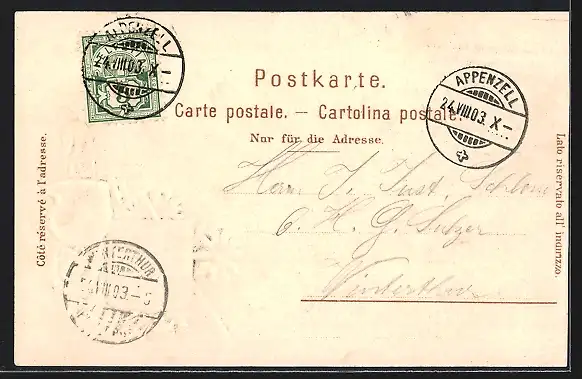 APPENZELL
24.VIII.03. X
Postkarte.
Carte postale. — Cartolina postale.
Nur für die Adresse.
APPENZELL
24.VIII.03. X—
Côté réservé à l'adresse.
Lato riservato all' indirizzo.
Herrn J.
G. Sulzer
Winterthur
WINTERTHUR
24.VIII.03.